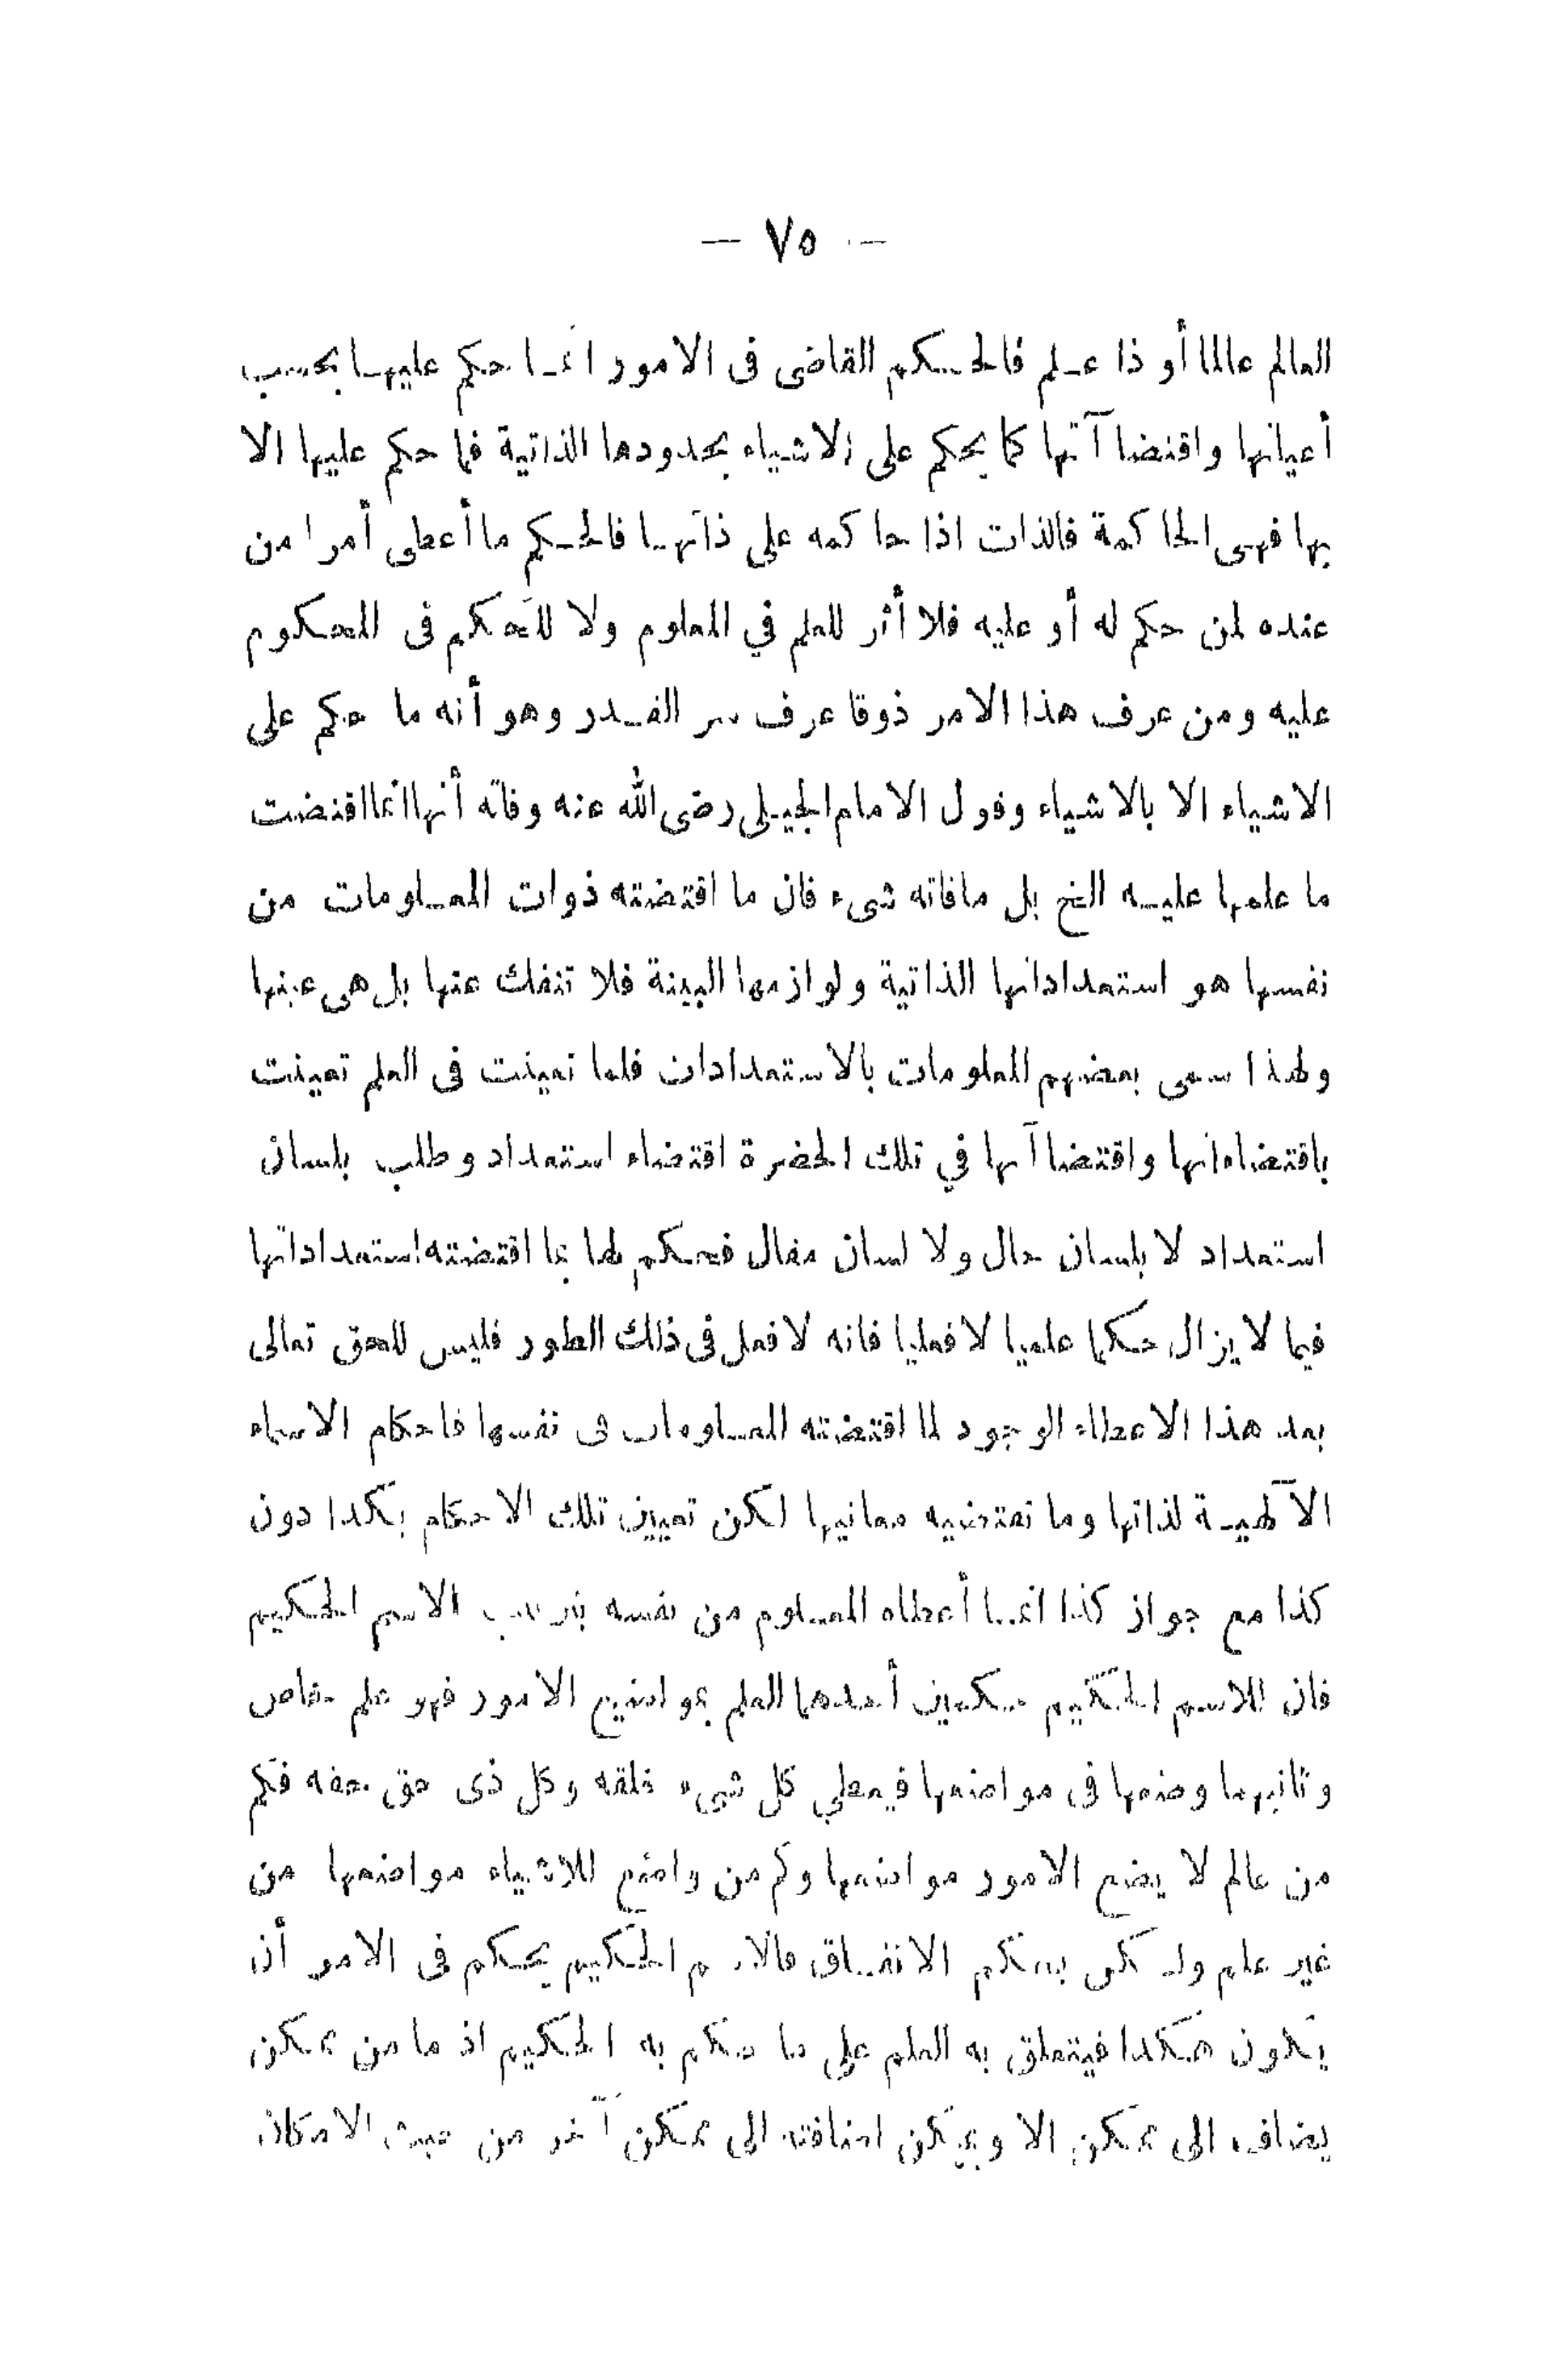 — ٧٥ —
العالم عالما أو ذا علم فالحكم القاضى فى الامور انما حكم عليها بحسب
أعيانها واقتضاآتها كما يحكم على الاشياء بحدودها الذاتية فما حكم عليها الا
بها فهى الحاكمة فالذات اذا حاكمه على ذاتها فالحكم ما أعطى أمرا من
عنده لمن حكم له أو عليه فلا أثر للعلم في المعلوم ولا للحكم فى المحكوم
عليه ومن عرف هذا الامر ذوقا عرف سر القدر وهو أنه ما حكم على
الاشياء الا بالاشياء وقول الامام الجيلى رضى الله عنه وفاته أنها انما اقتضت
ما علمها عليه الخ بل مافاته شىء فان ما اقتضته ذوات المعلومات من
نفسها هو استعداداتها الذاتية ولوازمها البينة فلا تنفك عنها بل هى عينها
ولهذا سمى بعضهم المعلومات بالاستعدادات فلما تعينت فى العلم تعينت
باقتضاءاتها واقتضاآتها في تلك الحضرة اقتضاء استعداد وطلب بلسان
استعداد لا بلسان حال ولا لسان مقال فحكم لها بما اقتضته استعداداتها
فيما لا يزال حكما علميا لا فعليا فانه لا فعل فى ذلك الطور فليس للحق تعالى
بعد هذا الا عطاء الوجود لما اقتضته المعلومات فى نفسها فاحكام الاسماء
الآلهية لذاتها وما تقتضيه معانيها لكن تعيين تلك الاحكام بكذا دون
كذا مع جواز كذا انما أعطاه المعلوم من نفسه بترتيب الاسم الحكيم
فان للاسم الحكيم حكمين أحدهما العلم بمواضيع الامور فهو علم خاص
وثانيهما وضعها فى مواضعها فيعطي كل شىء خلقه وكل ذى حق حقه فكم
من عالم لا يضع الامور مواضعها وكم من واضع للاشياء مواضعها من
غير علم ولكن بحكم الاتفاق فالاسم الحكيم يحكم فى الامر أن
يكون هكذا فيتعلق به العلم على ما حكم به الحكيم اذ ما من ممكن
يضاف الى ممكن الا ويمكن اضافته الى ممكن آخر من حيث الامكان